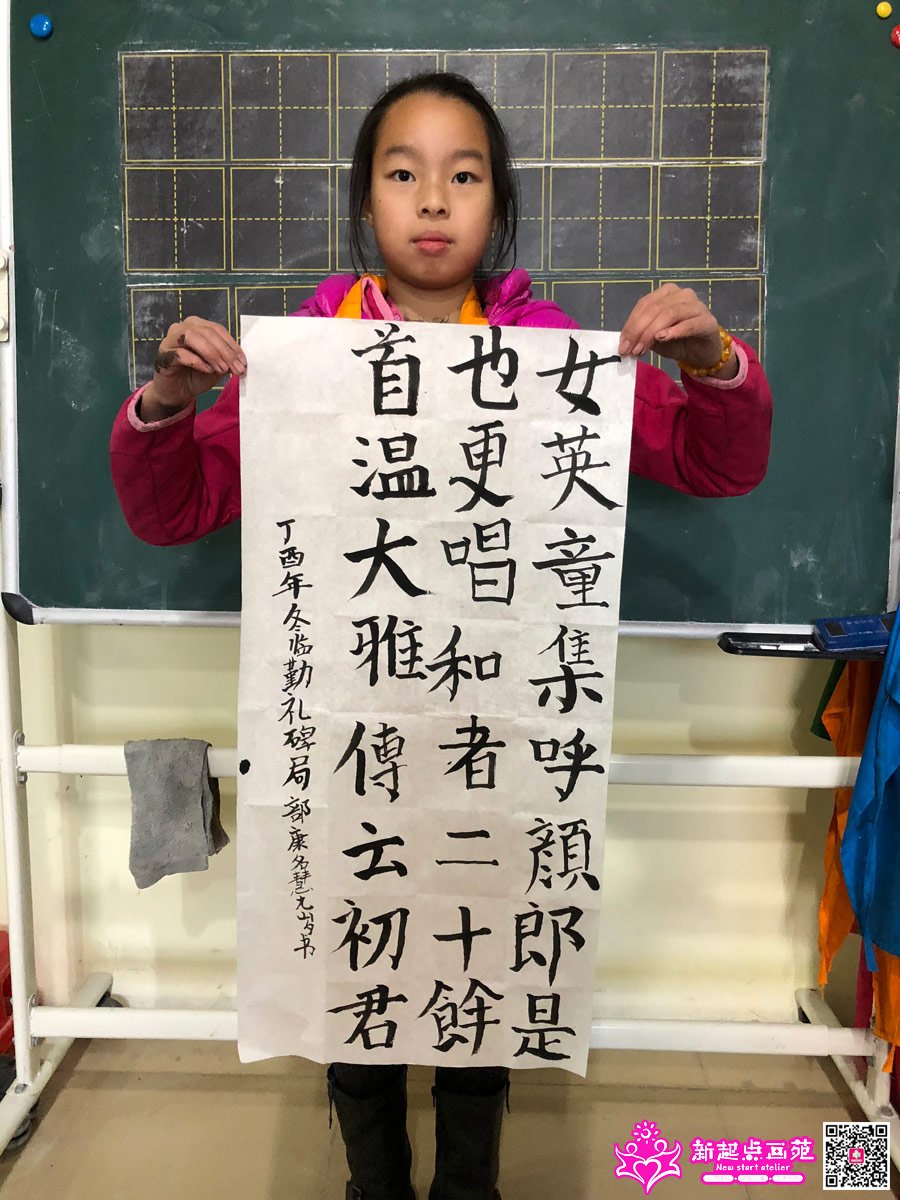 女英童集呼顔郎是
也更唱和者二十餘
首温大雅傳云初君
丁酉年冬临勤礼碑局部康名慧九岁书
新起点画苑
New start atelier